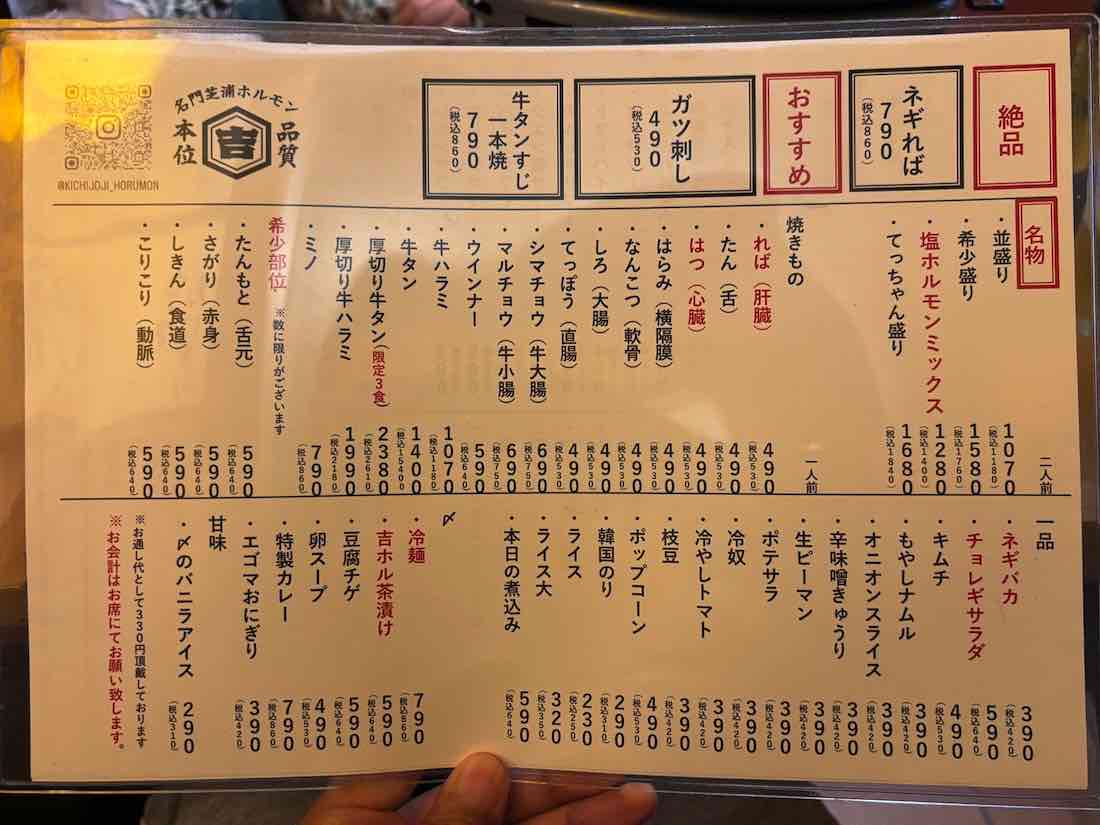 絶品
ネギれば
790
(税込860)
おすすめ
ガツ刺し
490
(税込530)
牛タンすじ
一本焼
790
(税込860)
名門芝浦ホルモン
品質
吉
本位
@KICHIJOJI_HORUMON
名物 二人前
・並盛り 1070 (税込1180)
・希少盛り 1580 (税込1760)
・塩ホルモンミックス 1280 (税込1400)
・てっちゃん盛り 1680 (税込1840)
焼きもの 一人前
・れば(肝臓) 490 (税込530)
・たん(舌) 490 (税込530)
・はつ(心臓) 490 (税込530)
・はらみ(横隔膜) 490 (税込530)
・なんこつ(軟骨) 490 (税込530)
・しろ(大腸) 490 (税込530)
・てっぽう(直腸) 490 (税込530)
・シマチョウ(牛大腸) 690 (税込750)
・マルチョウ(牛小腸) 690 (税込750)
・ウインナー 590 (税込640)
・牛ハラミ 1070 (税込1180)
・牛タン 1400 (税込15400)
・厚切り牛タン(限定3食) 2380 (税込2610)
・厚切り牛ハラミ 1990 (税込2180)
・ミノ 790 (税込860)
希少部位 ※数に限りがございます
・たんもと(舌元) 590 (税込640)
・さがり(赤身) 590 (税込640)
・しきん(食道) 590 (税込640)
・こりこり(動脈) 590 (税込640)
一品
・ネギバカ 390 (税込420)
・チョレギサラダ 590 (税込640)
・キムチ 490 (税込530)
・もやしナムル 390 (税込420)
・オニオンスライス 390 (税込420)
・辛味噌きゅうり 390 (税込420)
・生ピーマン 390 (税込420)
・ポテサラ 390 (税込420)
・冷奴 390 (税込420)
・冷やしトマト 390 (税込420)
・枝豆 390 (税込420)
・ポップコーン 490 (税込530)
・韓国のり 290 (税込310)
・ライス 230 (税込250)
・ライス大 320 (税込350)
・本日の煮込み 590 (税込640)
〆
・冷麺 790 (税込860)
・吉ホル茶漬け 590 (税込640)
・豆腐チゲ 590 (税込640)
・卵スープ 490 (税込530)
・特製カレー 790 (税込860)
・エゴマおにぎり 390 (税込420)
甘味
・〆のバニラアイス 290 (税込310)
※お通し代として330円頂戴しております
※お会計はお席にてお願い致します。